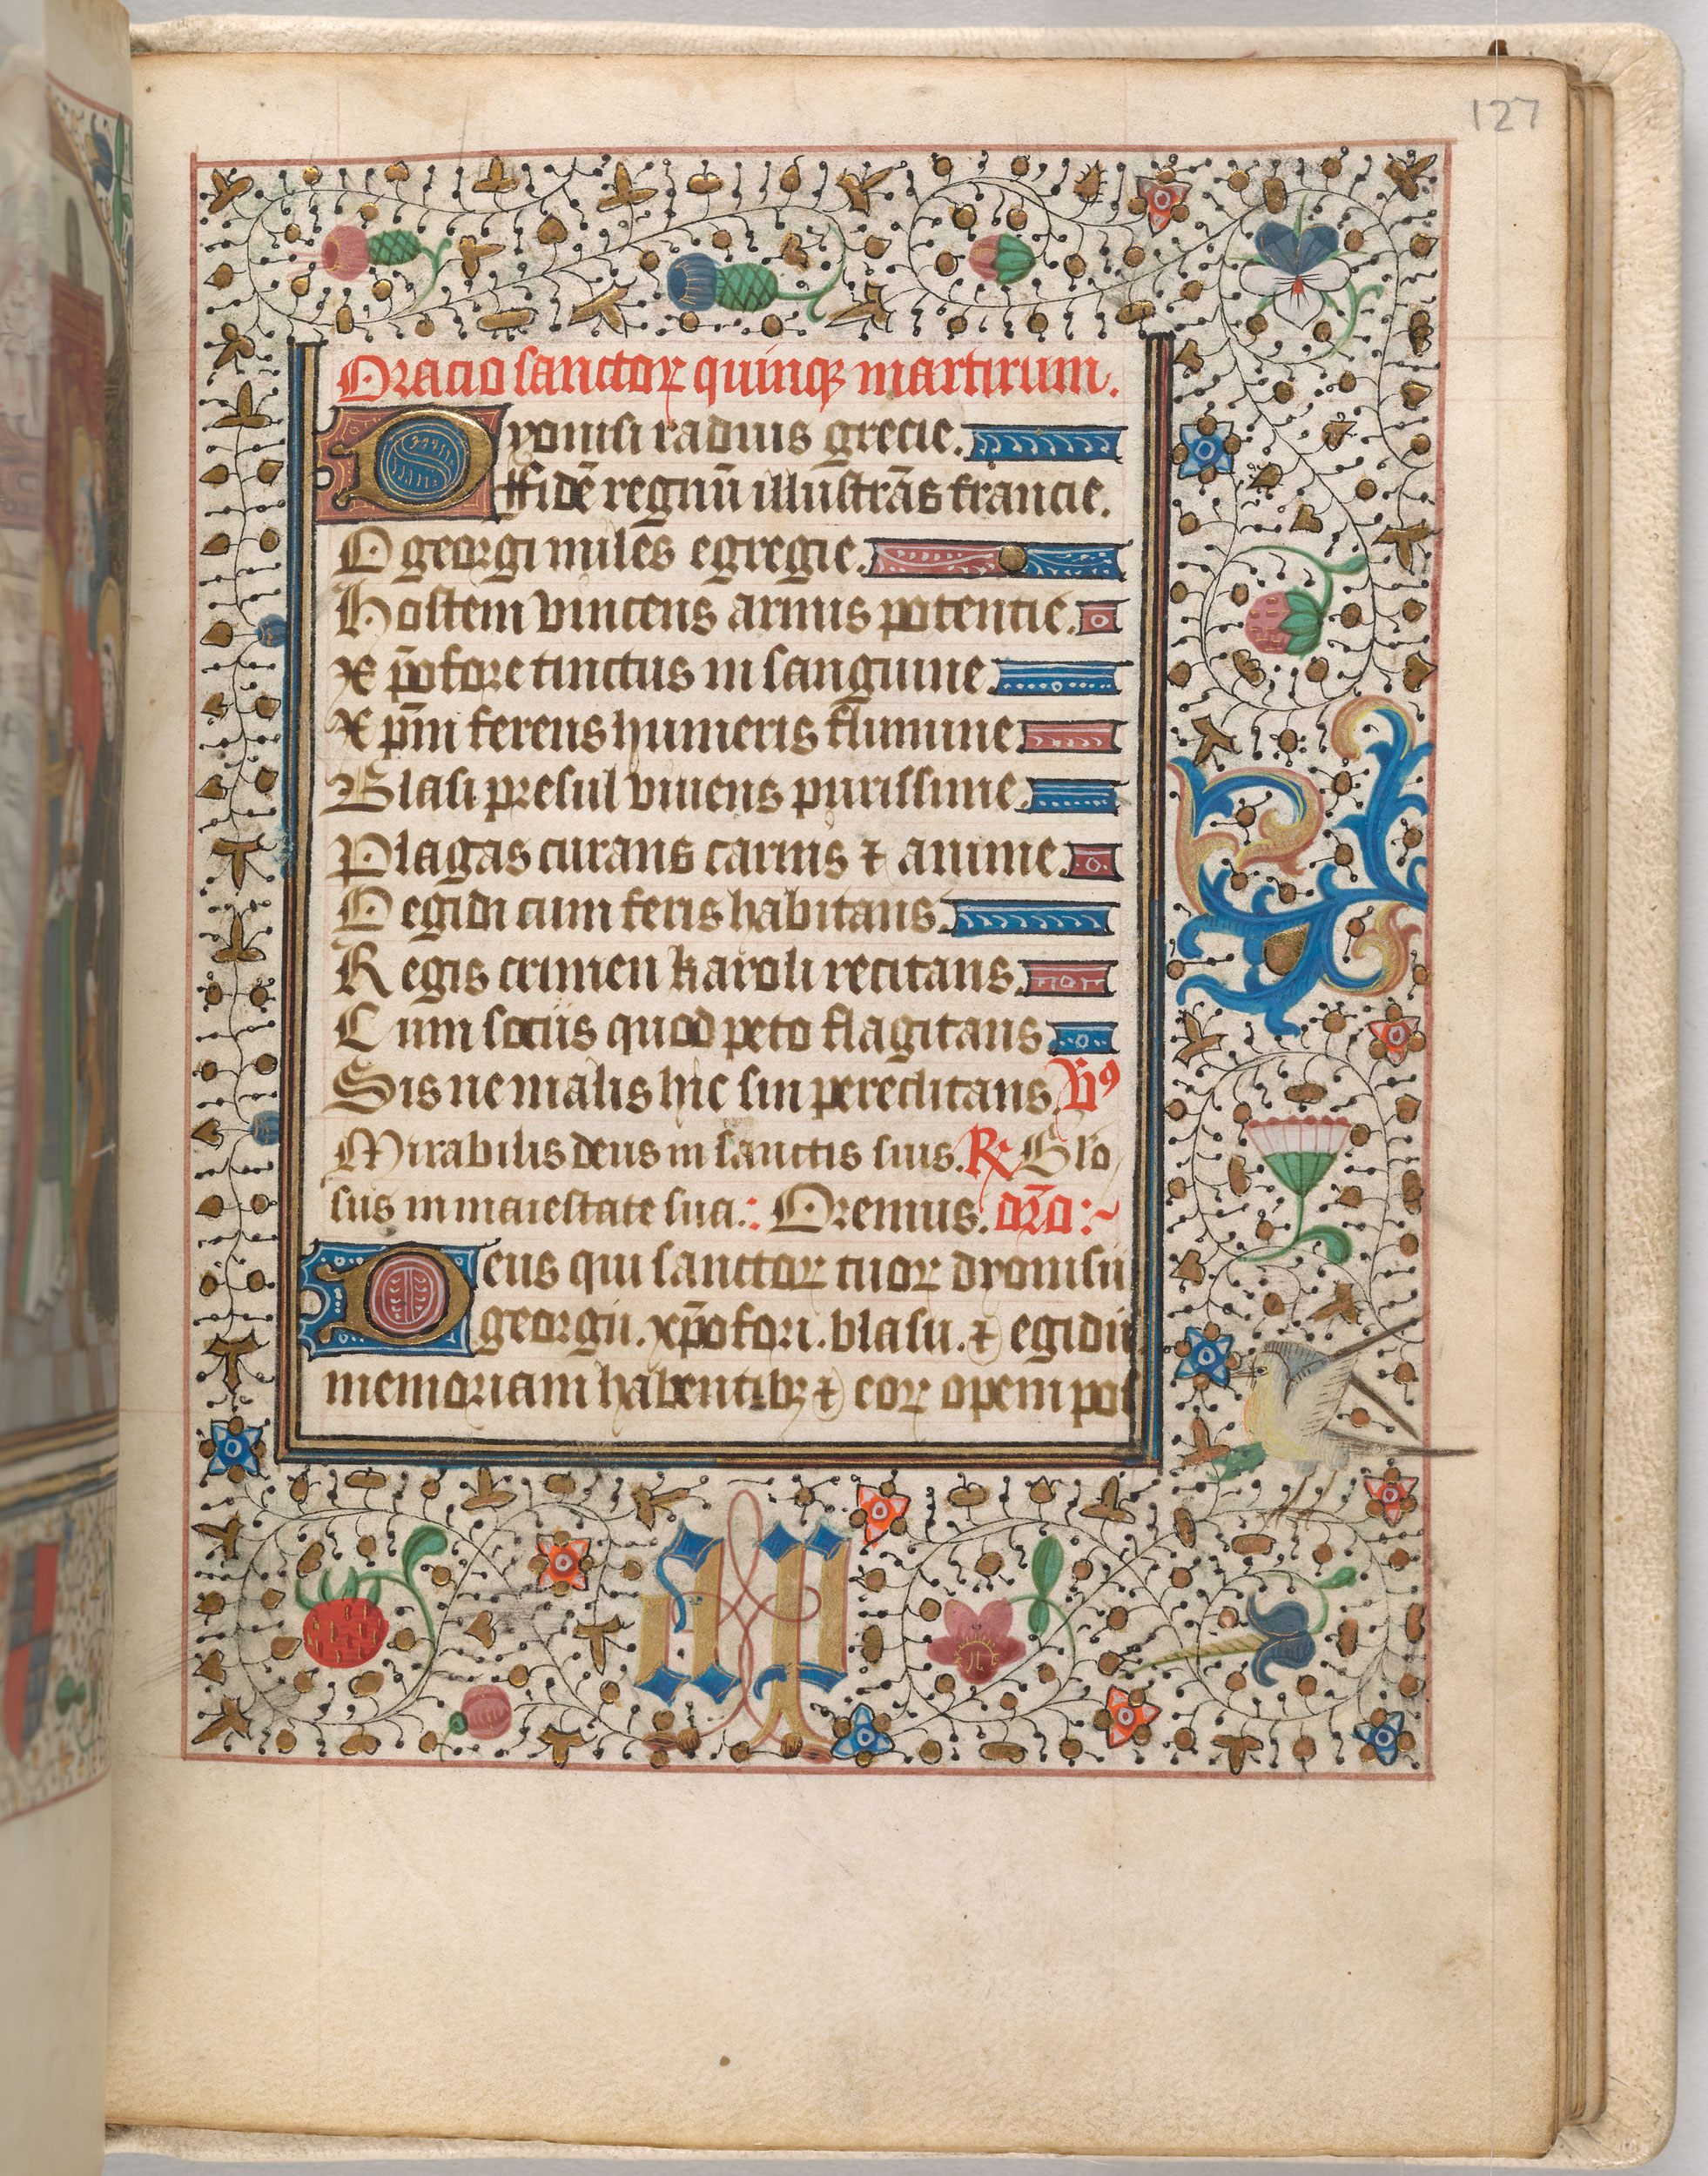 127
Oracio sanctoꝝ quinqꝫ martirum.
Dyonisi radius grecie.
Ffidē regnū illustrās francie.
O georgi miles egregie.
Hostem vincens armis potencie.
Xp̄ofore tinctus in sanguine
Xp̄m ferens humeris flumine
Blasi presul vivens purissime.
Plagas curans carnis ⁊ anime.
O egidi cum feris habitans.
Regis crimen karoli recitans.
Cum sociis quod peto flagitans
Sis ne malis hic sin pereclitans. V̄ꝰ
Mirabilis deus in sanctis suis. R̷ Glo
sus in maiestate sua: Oremus. or̄o:~
Deus qui sanctoꝝ tuoꝝ dyonisii
georgii. xp̄ofori. blasii. ⁊ egidii
memoriam habentibꝫ ⁊ eoꝝ opem pos